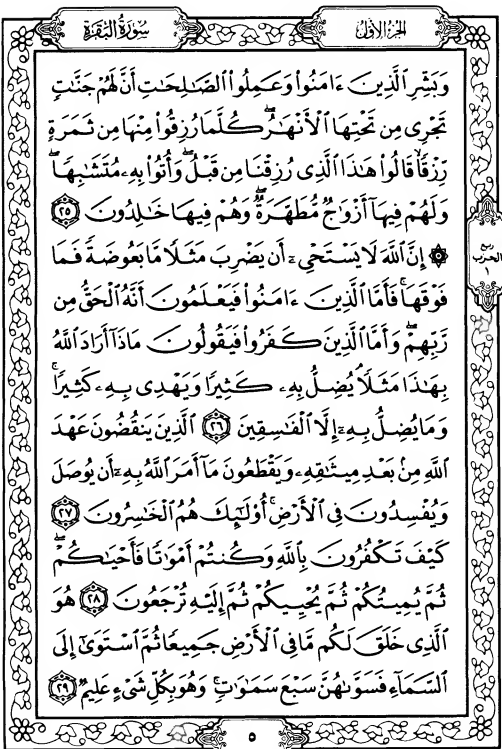 الجزء الأول
سورة البقرة
وَبَشِّرِ الَّذِينَ ءَامَنُوا وَعَمِلُوا الصَّٰلِحَٰتِ أَنَّ لَهُمْ جَنَّٰتٍ
تَجْرِي مِن تَحْتِهَا الْأَنْهَٰرُ ۖ كُلَّمَا رُزِقُوا مِنْهَا مِن ثَمَرَةٍ
رِّزْقًا ۙ قَالُوا هَٰذَا الَّذِي رُزِقْنَا مِن قَبْلُ ۖ وَأُتُوا بِهِۦ مُتَشَٰبِهًا ۖ
وَلَهُمْ فِيهَآ أَزْوَٰجٌ مُّطَهَّرَةٌ ۖ وَهُمْ فِيهَا خَٰلِدُونَ ٢٥
۞ إِنَّ اللَّهَ لَا يَسْتَحْيِۦٓ أَن يَضْرِبَ مَثَلًا مَّا بَعُوضَةً فَمَا
فَوْقَهَا ۚ فَأَمَّا الَّذِينَ ءَامَنُوا فَيَعْلَمُونَ أَنَّهُ الْحَقُّ مِن
رَّبِّهِمْ ۖ وَأَمَّا الَّذِينَ كَفَرُوا فَيَقُولُونَ مَاذَآ أَرَادَ اللَّهُ
بِهَٰذَا مَثَلًا ۘ يُضِلُّ بِهِۦ كَثِيرًا وَيَهْدِي بِهِۦ كَثِيرًا ۚ
وَمَا يُضِلُّ بِهِۦٓ إِلَّا الْفَٰسِقِينَ ٢٦ الَّذِينَ يَنقُضُونَ عَهْدَ
اللَّهِ مِنۢ بَعْدِ مِيثَٰقِهِۦ وَيَقْطَعُونَ مَآ أَمَرَ اللَّهُ بِهِۦٓ أَن يُوصَلَ
وَيُفْسِدُونَ فِي الْأَرْضِ ۚ أُولَٰٓئِكَ هُمُ الْخَٰسِرُونَ ٢٧
كَيْفَ تَكْفُرُونَ بِاللَّهِ وَكُنتُمْ أَمْوَٰتًا فَأَحْيَٰكُمْ ۖ
ثُمَّ يُمِيتُكُمْ ثُمَّ يُحْيِيكُمْ ثُمَّ إِلَيْهِ تُرْجَعُونَ ٢٨ هُوَ
الَّذِي خَلَقَ لَكُم مَّا فِي الْأَرْضِ جَمِيعًا ثُمَّ اسْتَوَىٰٓ إِلَى
السَّمَآءِ فَسَوَّىٰهُنَّ سَبْعَ سَمَٰوَٰتٍ ۚ وَهُوَ بِكُلِّ شَيْءٍ عَلِيمٌ ٢٩
ربع
الحزب
١
٥